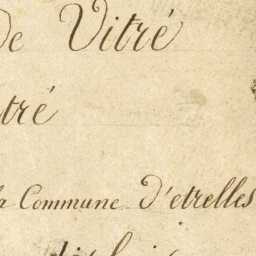 de Vitré
tré
la Commune D'etrelles